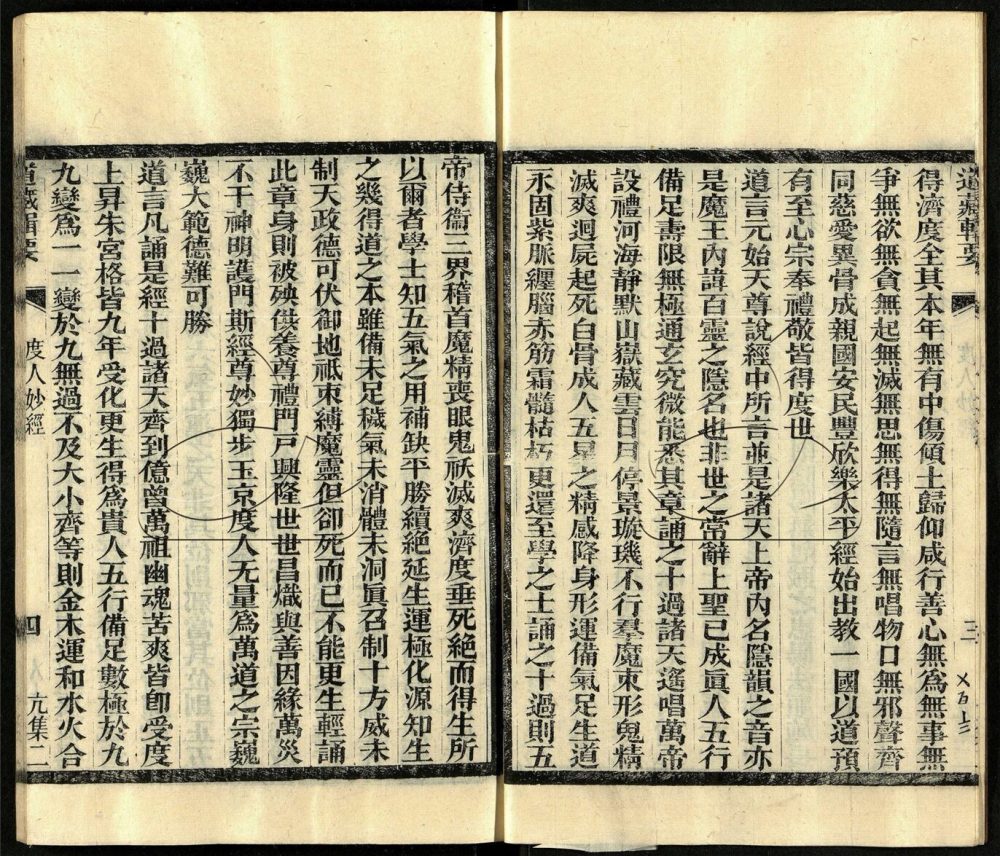 道藏輯要
得濟度全其本年無有中傷傾土歸仰咸行善心無為無事無
爭無欲無貪無起無滅無思無得無隨言無唱物口無邪聲齊
同慈愛異骨成親國安民豐欣樂太平經始出教一國以道預
有至心宗奉禮敬皆得度世
道言元始天尊說經中所言並是諸天上帝內名隱韻之音亦
是魔王內諱百靈之隱名也非世之常辭上聖已成眞人五行
備足壽限無極通玄究微能悉其章誦之十過諸天遙唱萬帝
設禮河海靜默山嶽藏雲日月停景璇璣不行羣魔束形鬼精
滅爽迴屍起死白骨成人五星之精感降身形運備氣足生道
永固紫脈纏腦赤筋霜髓枯朽更還至學之士誦之十過則五
三
帝侍衞三界稽首魔精喪眼鬼祅滅爽濟度垂死絕而得生所
以爾者學士知五氣之用補缺平勝續絕延生運極化源知生
之幾得道之本雖備未足穢氣未消體未洞眞召制十方威未
制天政德可伏御地祗束縛魔靈但卻死而已不能更生輕誦
此章身則被殃供養尊禮門戸興隆世世昌熾與善因緣萬災
不干神明護門斯經尊妙獨步玉京度人无量為萬道之宗巍
巍大範德難可勝
道言凡誦是經十過諸天齊到億曾萬祖幽魂苦爽皆卽受度
上昇朱宮格皆九年受化更生得為貴人五行備足數極於九
九變為一一變於九無過不及大小齊等則金木運和水火合
道藏輯要
度人妙經
四
亢集二